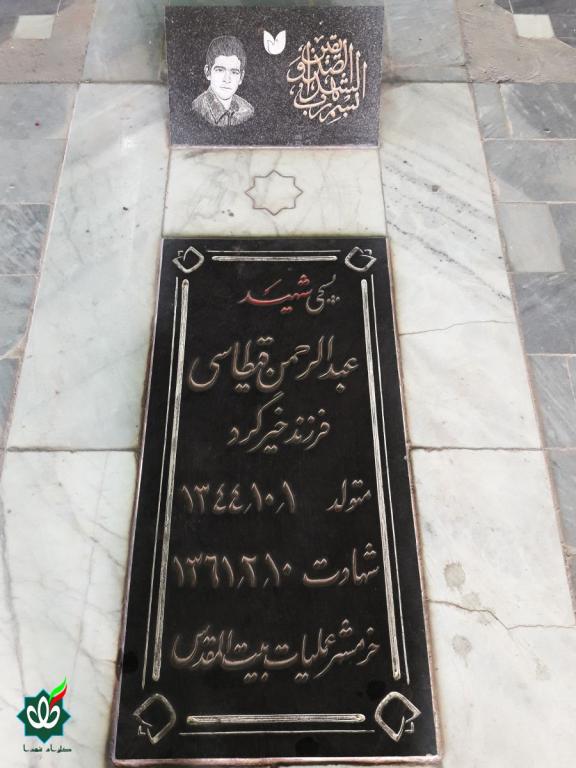 بسم رب الشهدا و الصدیقین
بسیجی شهید
عبدالرحمن قیطاسی
فرزند خیرگرد
متولد ۱۳۴۴٫۱۰٫۱
شهادت ۱۳۶۱٫۲٫۱۰
خرمشهر عملیات بیت المقدس
گلزار شهدا